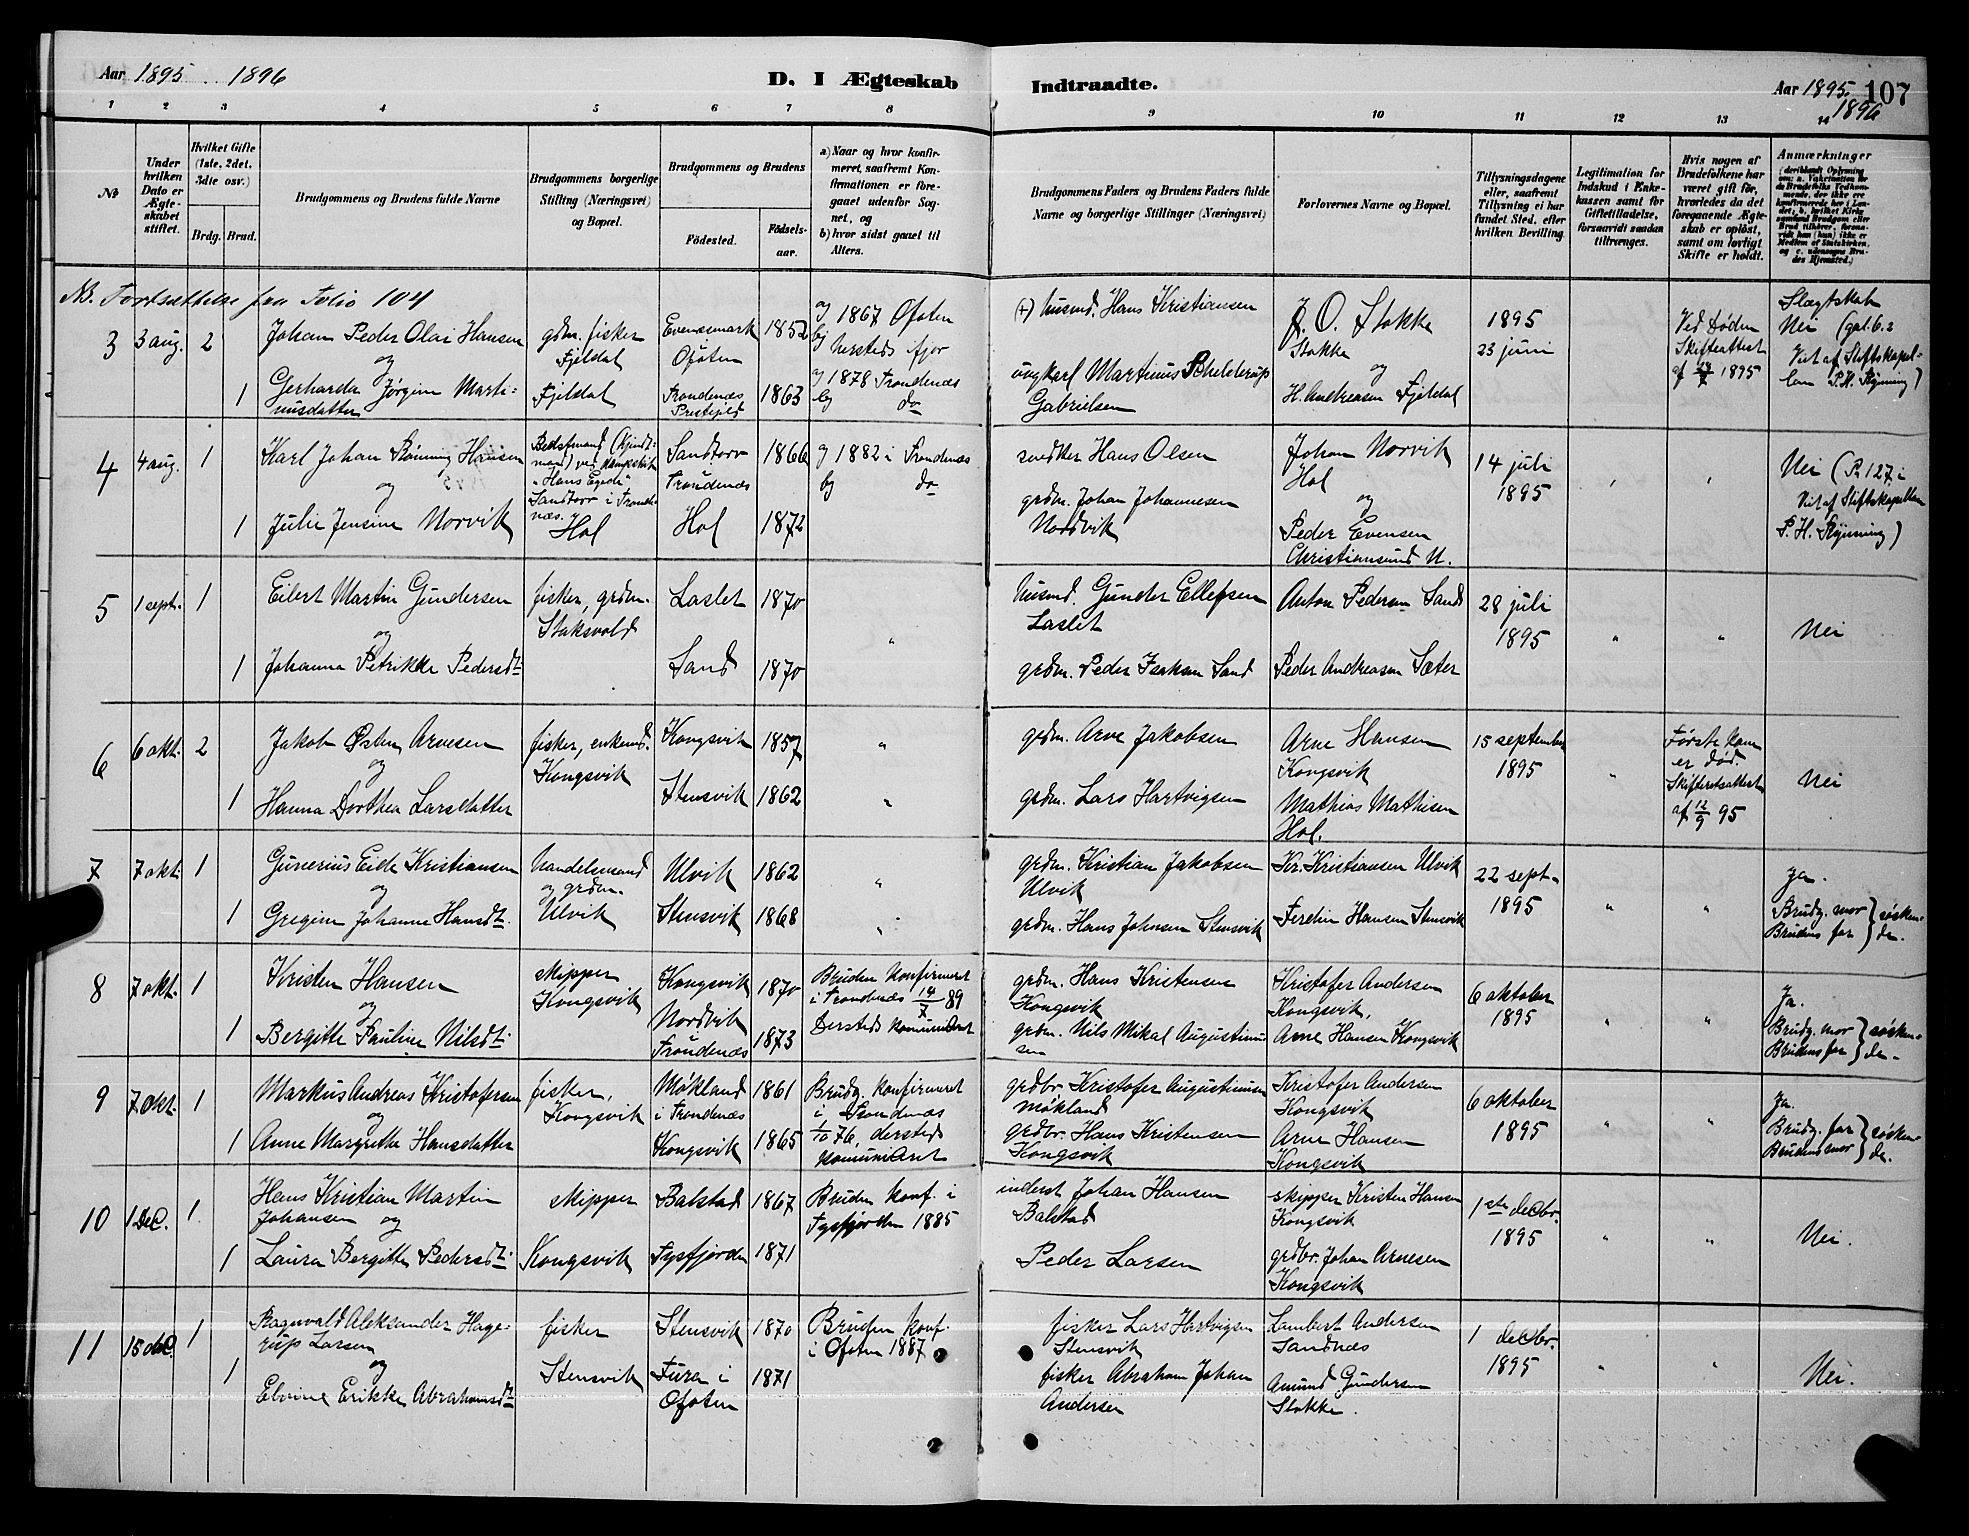 Aar 1895 .. 1896
D. I Ægteskab
Indtraadte.
Aar 1895. 107
1896
1 2 3 4 5 6 7 8 9 10 11 12 13 14
No
Under hvilken Dato er Ægteskabet stiftet.
Hvilket Gifte (1ste, 2det, 3die osv.)
Brdg. Brud.
Brudgommens og Brudens fulde Navne
Brudgommens borgerlige Stilling (Næringsvei) og Bopæl.
Brudgommens og Brudens
Födested.
Födselsaar.
a) Naar og hvor konfirmeret, saafremt Konfirmationen er foregaaet udenfor Sognet, og
b) hvor sidst gaaet til Alters.
Brudgommens Faders og Brudens Faders fulde Navne og borgerlige Stillinger (Næringsvei)
Forlovernes Navne og Bopæl.
Tillysningsdagene eller, saafremt Tillysning ei har fundet Sted, efter hvilken Bevilling.
Legitimation for Indskud i Enkekassen samt for Giftetilladelse, forsaavidt saadan tiltrænges.
Hvis nogen af Brudefolkene har været gift før, hvorledes da det foregaaende Ægteskab er oplöst, samt om lovligt Skifte er holdt.
Anmærkninger
NB. Fortsættelse fra Folio 104
3 3 aug. 2 Johan Peder Olai Hansen
og
1 Gerharda Jørgine Martinusdatter
gdm. fisker Fjeldal
Fjeldal
Evenæsmark Ofoten 1852
Trondenæs Prestejeld 1863
a) 1867 Ofoten
b) hersteds fjor
a) 1878 Trondenæs
b) do
(+) husmd. Hans Kristiansen
ungkarl Martinus Schelderup Gabrielsen
J. O. Stokke
Stokke
og
H. Andreasen Fjeldal
1895
23 juni
Ved Døden
Skifteattest
af 24/7 1895
Slægtskab
Nei
4 4 aug. 1 Karl Johan Rönning Hansen
og
1 Julie Jensine Norvik
Sandtorv i Trondenæs.
Hol
Sandtorv Trondenæs 1866
Hol 1872
a) 1882 i Trondenæs
b) do
Hans Olsen
grdm. Johan Johannesen Nordvik
Johan Norvik
Hol
og
Peder Evensen
Christiansund N.
14 juli
1895
Nei (P. 127 i
Vid af Stiftskapellan
5 1 sept. 1 Eilert Martin Gundersen
og
1 Johanna Petrikke Pedersdt.
fisker, grdm.
Staksvold
Laslet 1870
Sand 1870
husmd. Gunder Ellefsen
Laslet
grdm. Peder Isaksen Sand
Anton Pedersen Sand
Peder Andreasen Sæter
28 juli
1895
Nei
6 6 okt. 2 Jakob Østen Arnesen
og
1 Hanna Dorthea Larsdatter
fisker, enkemd.
Kongsvik
Kongsvik 1857
Stensvik 1862
grdm. Arne Jakobsen
grdm. Lars Hartvigsen
Arne Hansen
Kongsvik
Mathias Mathisen
Hol.
15 september
1895
Første kone
er død.
Skifteretsattest
af 12/9 95
Nei
7 7 okt. 1 Gunerius Eide Kristiansen
og
1 Gregine Johanne Hansdt.
Handelsmand
og grdm.
Ulvik
Ulvik 1862
Stensvik 1868
grdm. Kristian Jakobsen
Ulvik
grdm. Hans Johnsen Stensvik
Kr. Kristiansen Ulvik
Ferdin Hansen Stensvik
22 sept.
1895
Ja.
Brudg. mor
Brudens far } søskende.
8 7 okt. 1 Kristen Hansen
og
1 Bergitte Pauline Nilsdt.
skipper
Kongsvik
Kongsvik 1870
Nordvik
Trondenæs 1873
Bruden konfirmeret
i Trondenæs 14/7 89
Dersteds komuniceret
grdm. Hans Kristensen
Kongsvik
grdm. Nils Mikal Augustinussen
Kristofer Andersen
Kongsvik,
Arne Hansen Kongsvik
6 oktober
1895
Ja.
Brudg. mor
Brudens far } søskende.
9 7 okt. 1 Markus Andreas Kristofersen
og
1 Anne Margrethe Hansdatter
fisker,
Kongsvik
Møkland
i Trondenæs 1861
Kongsvik 1865
Brudg. konfirmeret
i Trondenæs
1/10 76, dersteds
komuniceret
grdbr. Kristofer Augustinusen
Møkland
grdbr. Hans Kristensen
Kongsvik
Kristofer Andersen
Kongsvik
Arne Hansen
Kongsvik
6 oktober
1895
Ja.
Brudg. far
Brudens mor } søskende.
10 1 Dec. 1. Hans Kristian Martin
Johansen og
1 Laura Bergitte Pedersdt.
skipper
Kongsvik
Balstad 1867
Tysfjorden 1871
Bruden konf. i
Tysfjorden 1885
inderst Johan Hansen
Balstad
Peder Larsen
skipper Kristen Hansen
Kongsvik
grdbr. Johan Arnesen
Kongsvik
1ste decbr.
1895
Nei.
11 15 dec. 1 Ragnvald Aleksander Hagerup Larsen
og
1 Elvine Erikke Abrahamsdt
fisker
Stensvik
Stensvik 1870
Furen i
Ofoten 1871
Bruden konf.
i Ofoten 1887
fisker Lars Hartvigsen
Stensvik
fisker Abraham Johan
Andersen
Lambert Andersen
Sandnæs
Amund Gundersen
Stokke.
1 decbr.
1895
Nei.